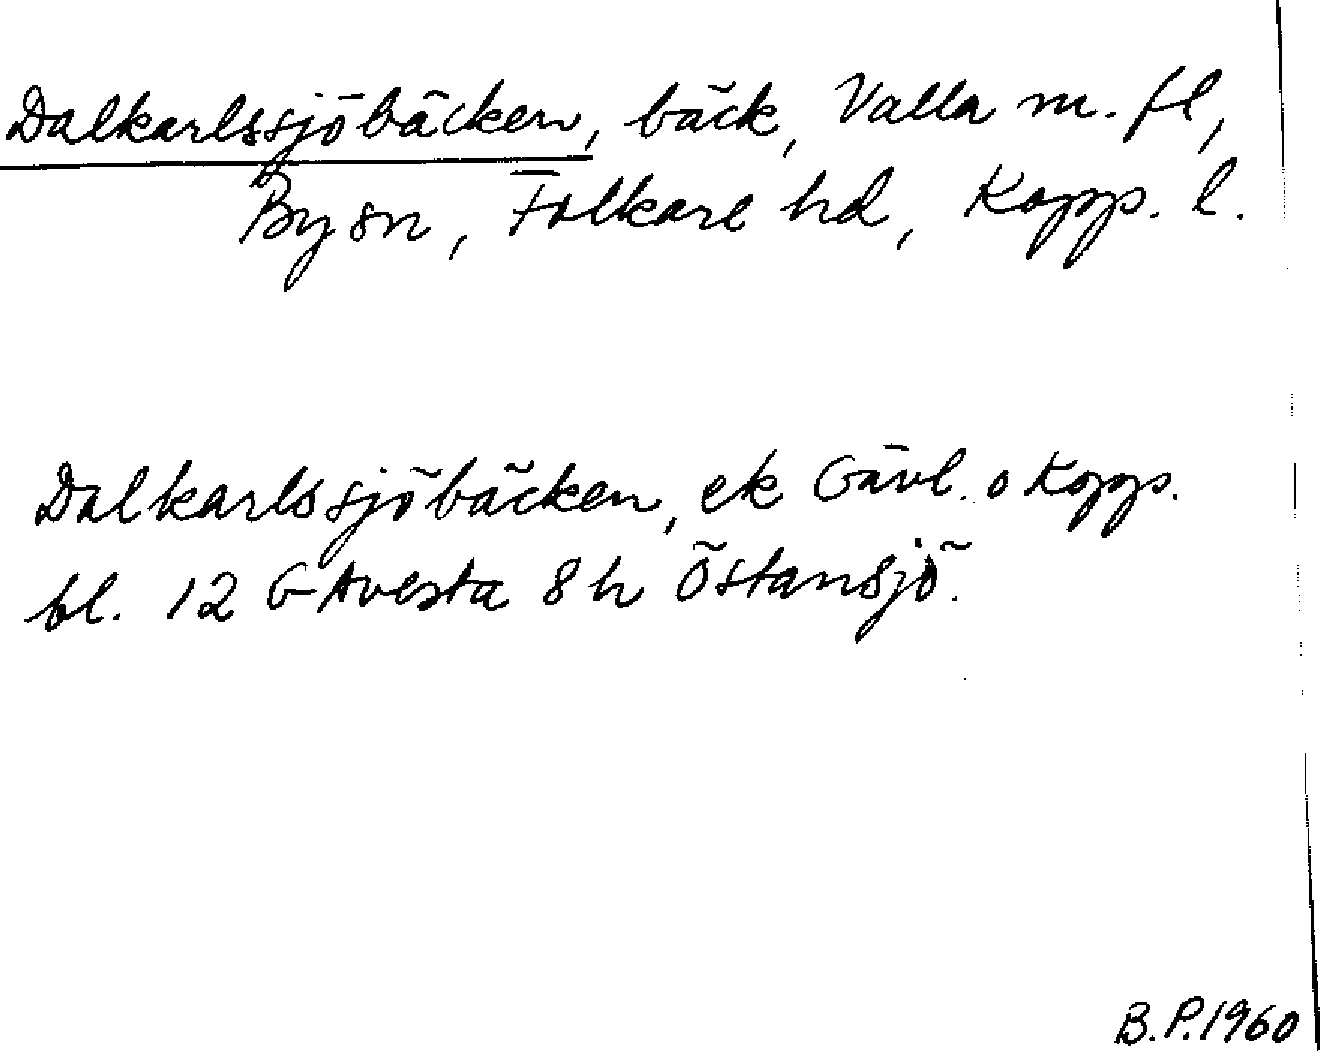 Dalkarlssjöbäcken, bäck, Valla m. fl,
By sn, Folkare hd, Kopp. l.
Dalkarlssjöbäcken, ek Gävl. o Kopps.
bl. 12 G Avesta 8 h Östansjö.
B.P.1960